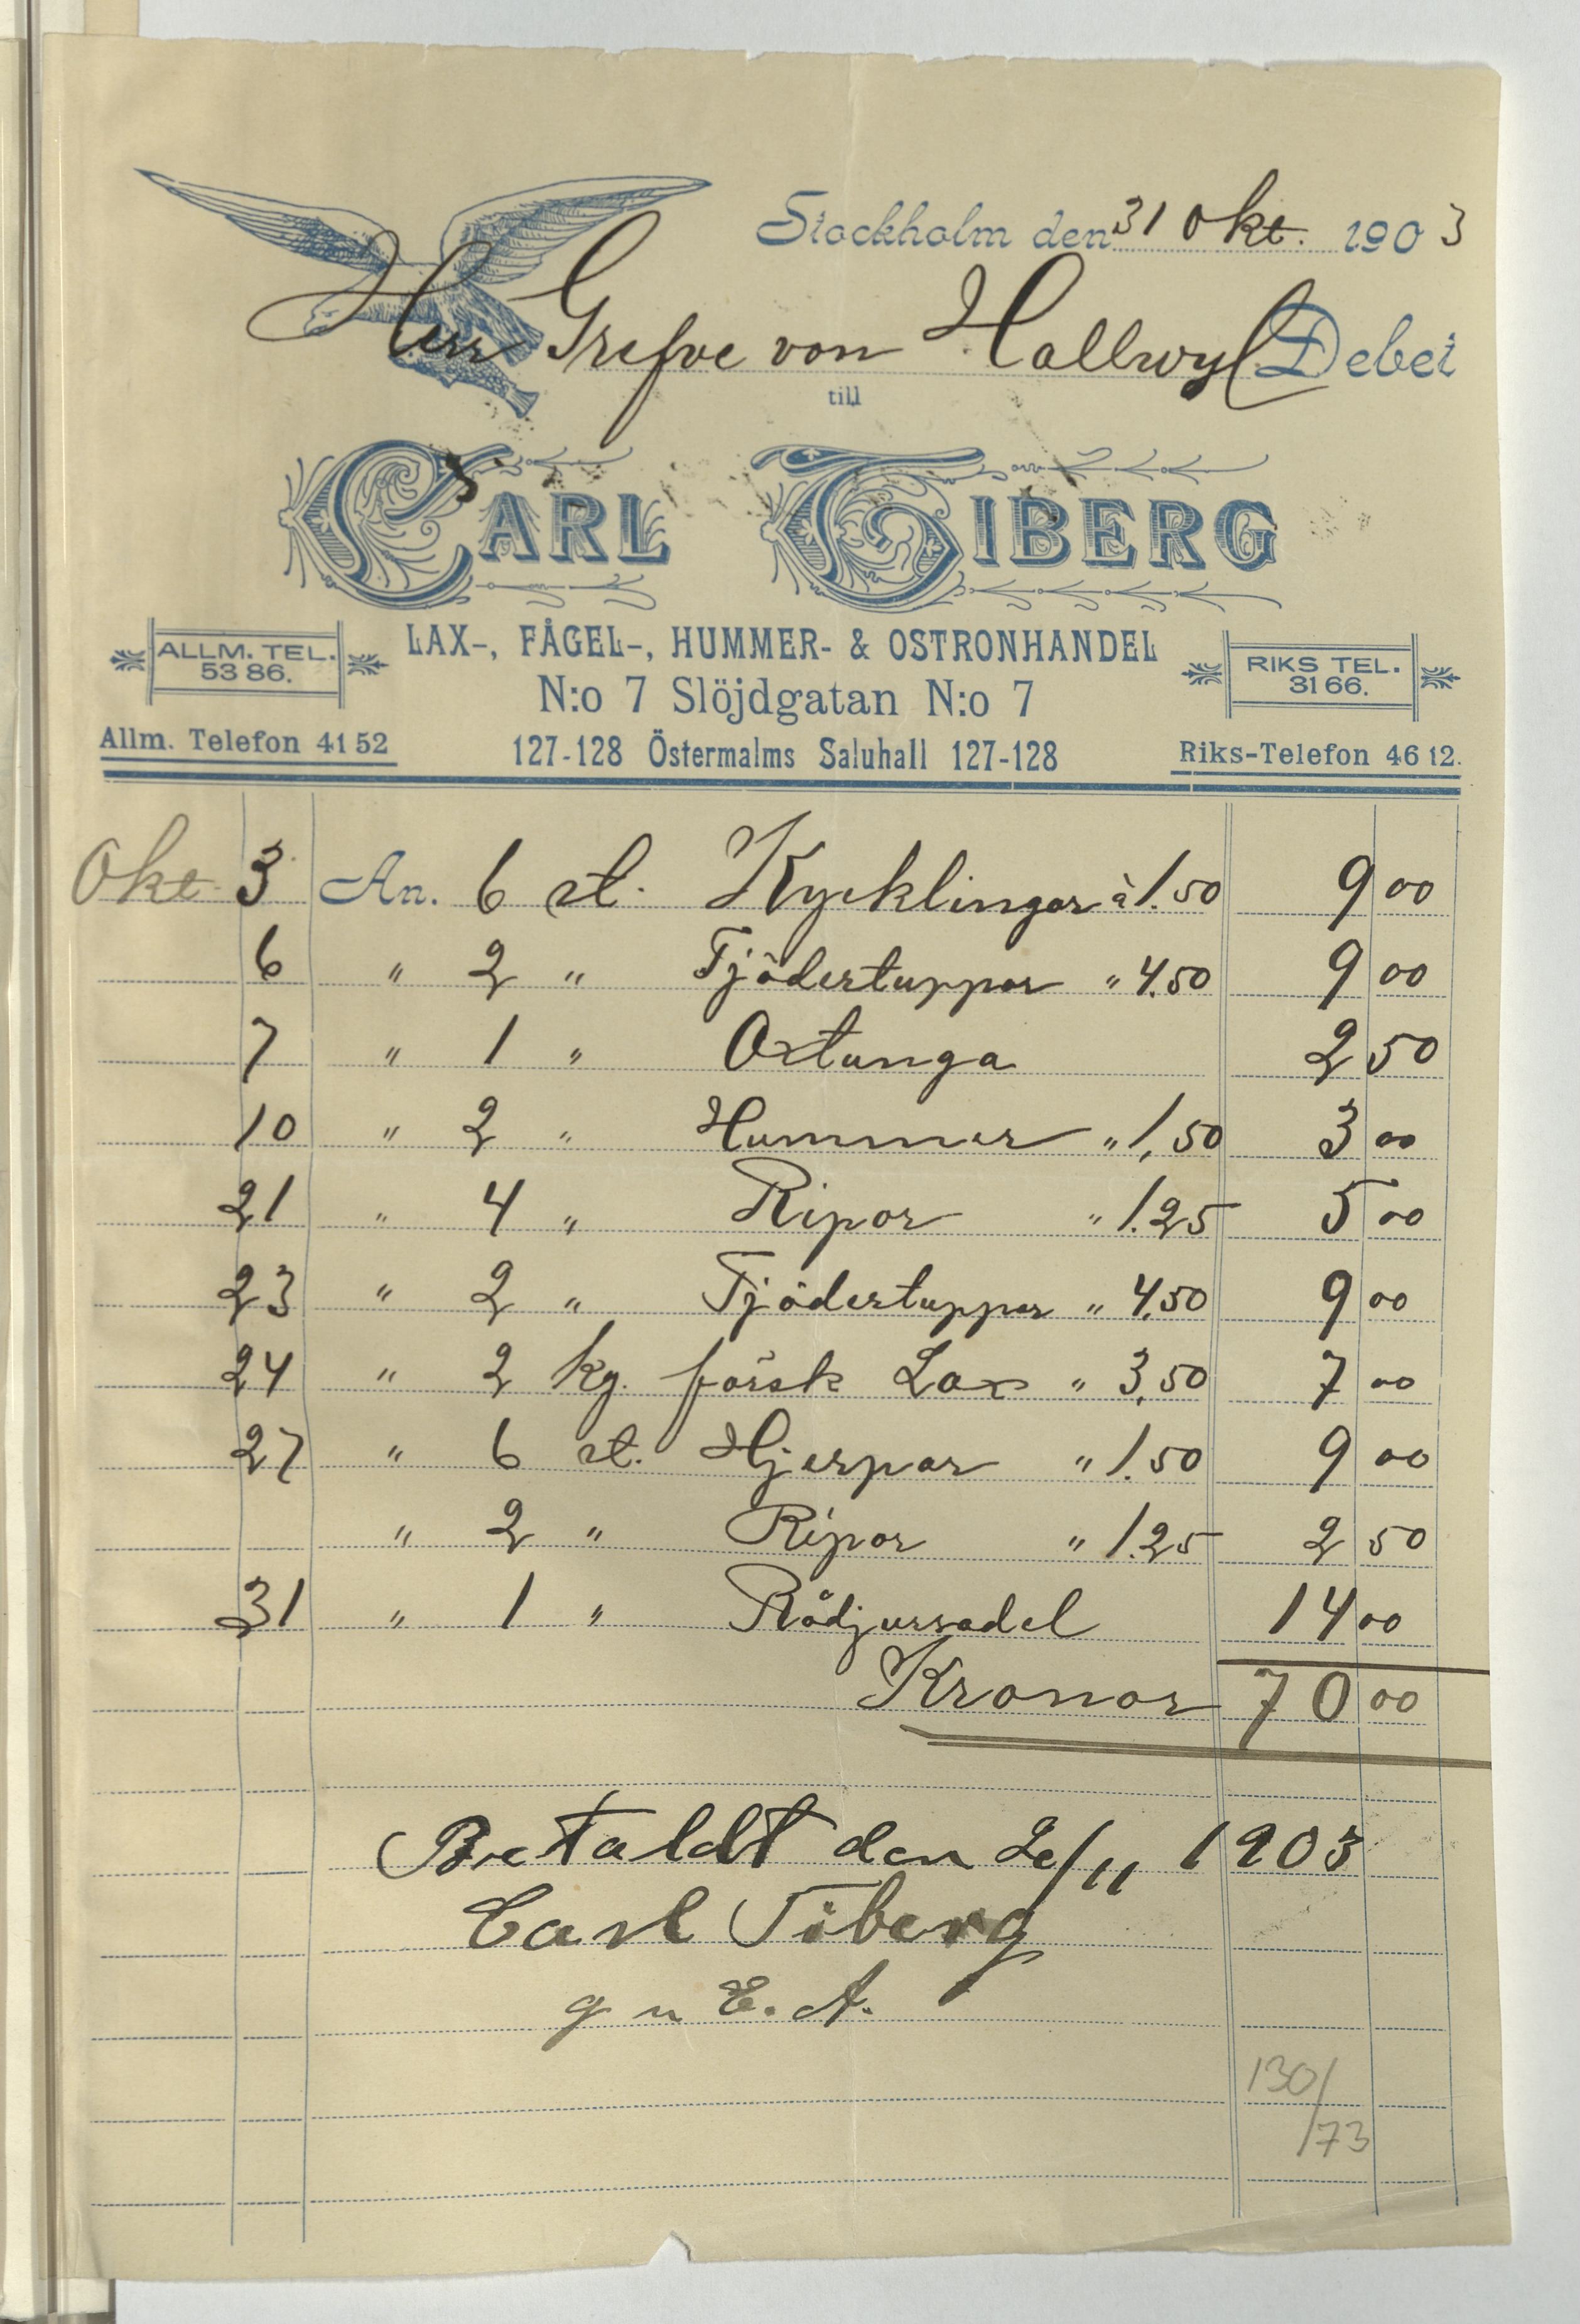 Stockholm den 31 Okt. 1903
Herr Grefve von Hallwyl Debet
till
CARL TIBERG
LAX-, FÅGEL-, HUMMER- & OSTRONHANDEL
ALLM. TEL. 53 86.
RIKS TEL. 31 66.
N:o 7 Slöjdgatan N:o 7
Allm. Telefon 41 52
127-128 Östermalms Saluhall 127-128
Riks-Telefon 46 12.
Okt. 3 An. 6 st. Kycklingar à 1.50 9 00
6 " 2 " Tjädertuppar " 4.50 9 00
7 " 1 " Oxtunga 2 50
10 " 2 " Hummer " 1,50 3 00
21 " 4 " Ripor " 1.25 5 00
23 " 2 " Tjädertuppar " 4,50 9 00
24 " 2 kg. färsk Lax " 3,50 7 00
27 " 6 st. Hjerpar " 1.50 9 00
" 2 " Ripor " 1.25 2 50
31 " 1 " Rådjurssadel 14 00
Kronor 70 00
Betaldt den 2/11 1903
Carl Tiberg
g n E. A.
130/
/73